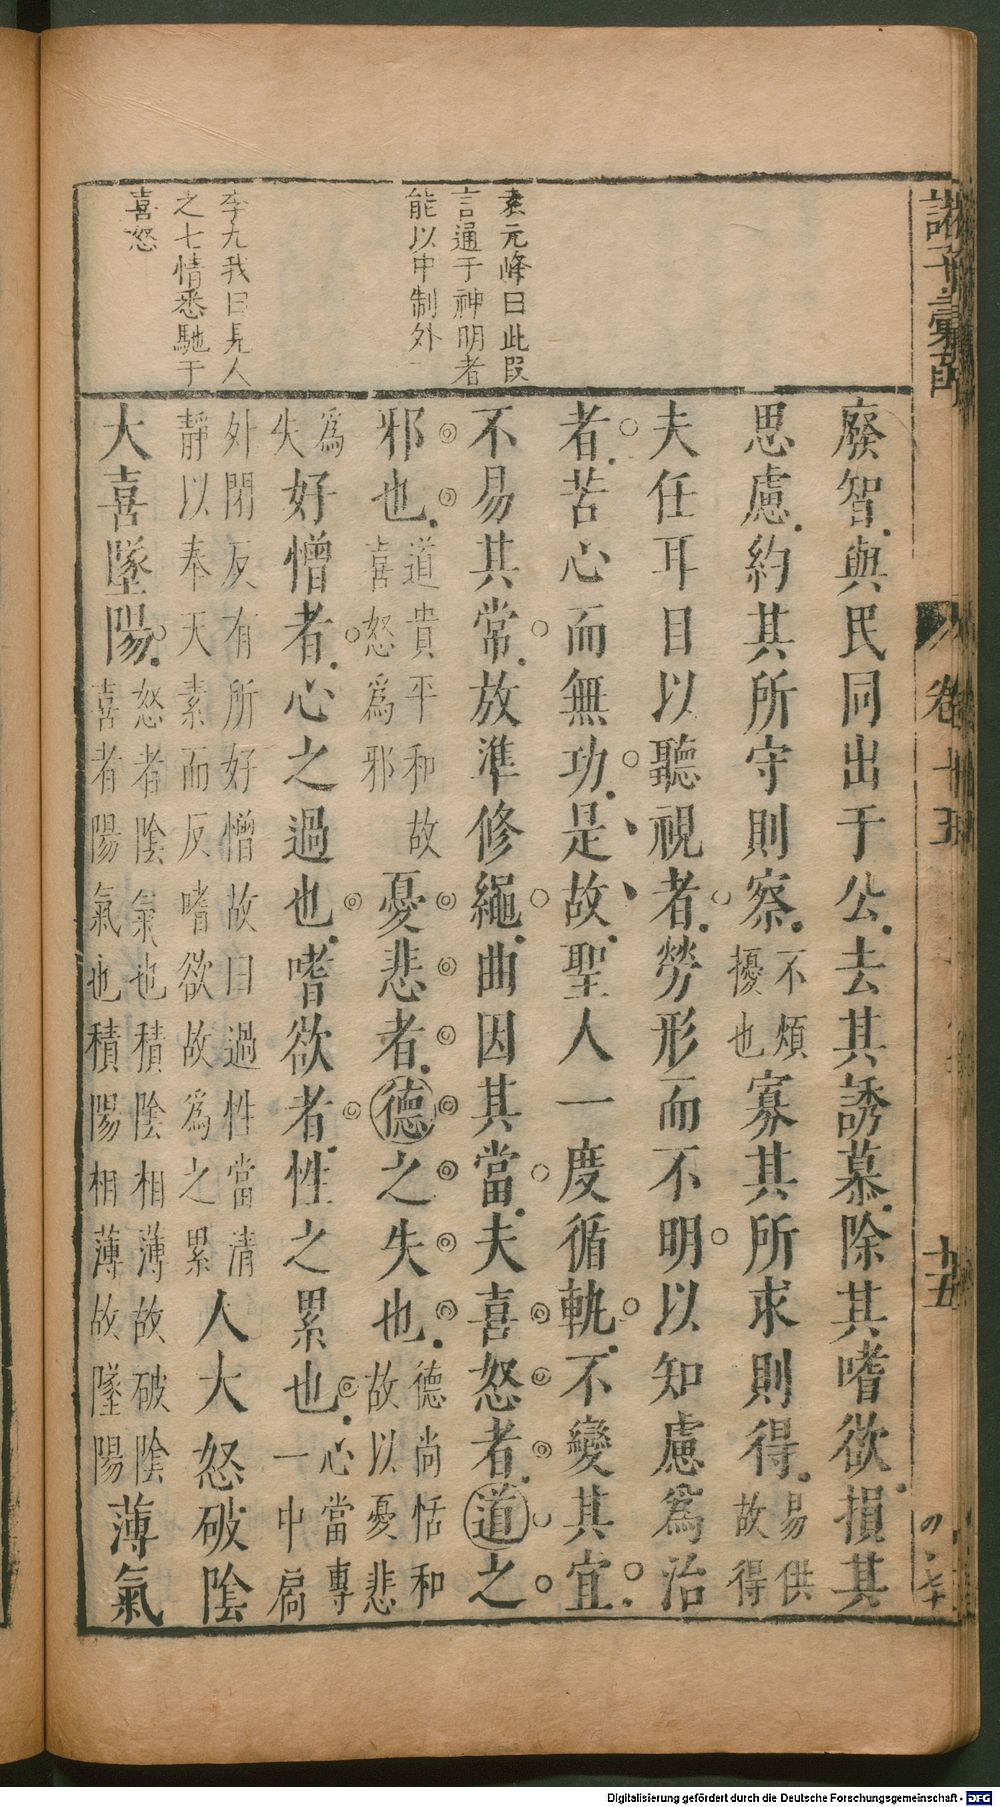 諸子彙函
卷十五
十五
言通于神明者
能以中制外
李九我曰見人
之七情悉馳于
喜怒
廢智與民同出于公去其誘慕除其嗜欲損其
思慮約其所守則察不煩擾也寡其所求則得易供故得
夫任耳目以聽視者勞形而不明以知慮為治
者苦心而無功是故聖人一度循軌不變其宜
不易其常放準修繩曲因其當夫喜怒者道之
邪也道貴平和故喜怒為邪憂悲者德之失也德尚恬和故以憂悲
為失好憎者心之過也嗜欲者性之累也心當專一中扃
外閉反有所好憎故曰過性當清靜以奉天素而反嗜欲故為之累人大怒破陰
大喜墜陽怒者陰氣也積陰相薄故破陰喜者陽氣也積陽相薄故墜陽薄氣
Digitalisierung gefördert durch die Deutsche Forschungsgemeinschaft - DFG